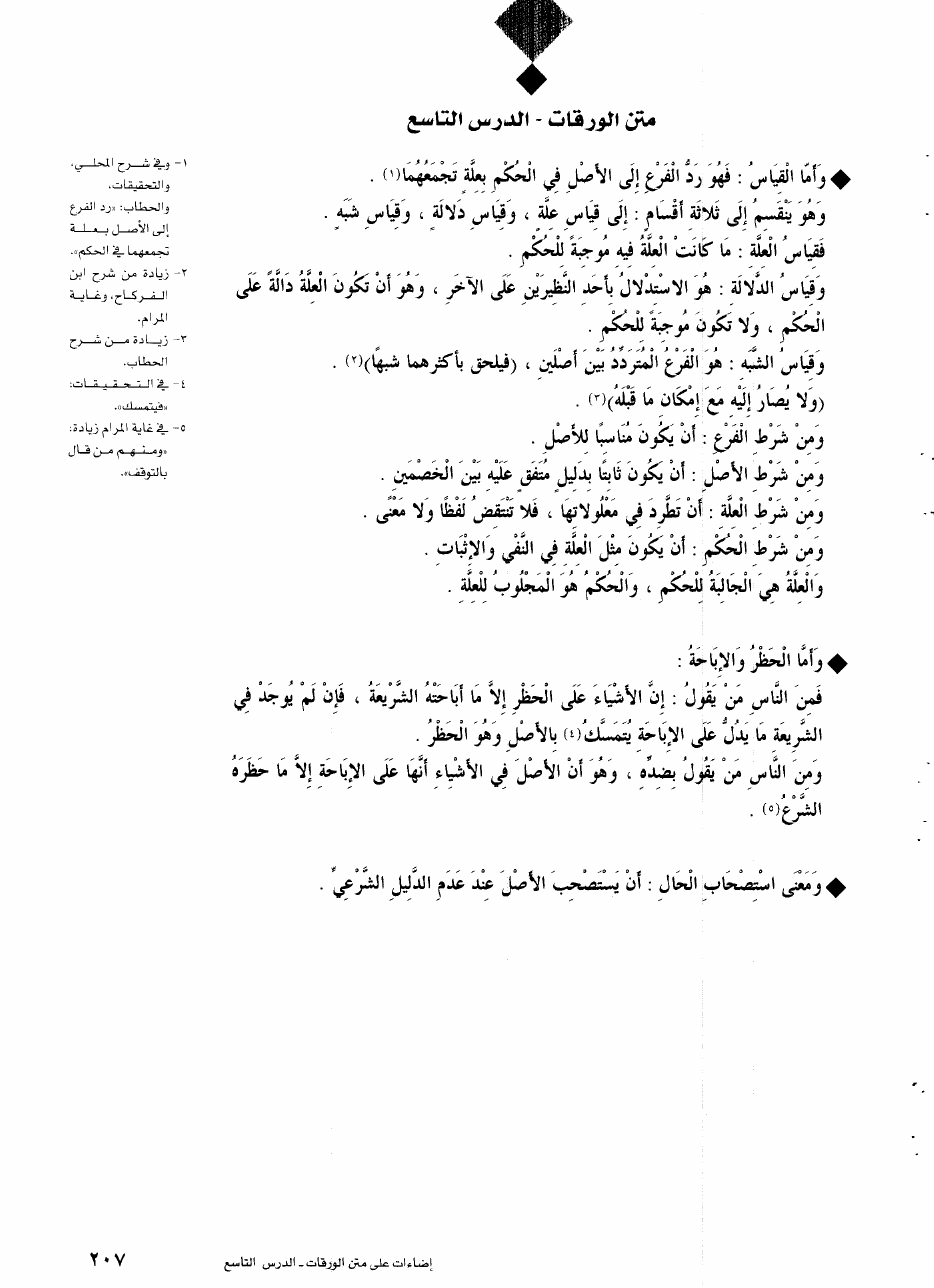 متن الورقات - الدرس التاسع
وَأَمَّا الْقِيَاسُ : فَهُوَ رَدُّ الْفَرْعِ إِلَى الأَصْلِ فِي الْحُكْمِ بِعِلَّةٍ تَجْمَعُهُمَا(١) .
وَهُوَ يَنْقَسِمُ إِلَى ثَلاثَةِ أَقْسَامٍ : إِلَى قِيَاسِ عِلَّةٍ ، وَقِيَاسِ دَلالَةٍ ، وَقِيَاسِ شَبَهٍ .
فَقِيَاسُ الْعِلَّةِ : مَا كَانَتْ الْعِلَّةُ فِيهِ مُوجِبَةً لِلْحُكْمِ .
وَقِيَاسُ الدَّلالَةِ : هُوَ الاسْتِدْلالُ بِأَحَدِ النَّظِيرَيْنِ عَلَى الآخَرِ ، وَهُوَ أَنْ تَكُونَ الْعِلَّةُ دَالَّةً عَلَى
الْحُكْمِ ، وَلا تَكُونَ مُوجِبَةً لِلْحُكْمِ .
وَقِيَاسُ الشَّبَهِ : هُوَ الْفَرْعُ الْمُتَرَدِّدُ بَيْنَ أَصْلَينِ ، (فيلحق بأكثرهما شبهاً)(٢) .
(وَلا يُصَارُ إِلَيْهِ مَعَ إِمْكَانِ مَا قَبْلَهُ)(٣) .
وَمِنْ شَرْطِ الْفَرْعِ : أَنْ يَكُونَ مُنَاسِبًا لِلأَصْلِ .
وَمِنْ شَرْطِ الأَصْلِ : أَنْ يَكُونَ ثَابِتًا بِدَلِيلٍ مُتَّفَقٍ عَلَيْهِ بَيْنَ الْخَصْمَينِ .
وَمِنْ شَرْطِ الْعِلَّةِ : أَنْ تَطَّرِدَ فِي مَعْلُولاتِهَا ، فَلا تَنْتَقِضُ لَفْظًا وَلا مَعْنًى .
وَمِنْ شَرْطِ الْحُكْمِ : أَنْ يَكُونَ مِثْلَ الْعِلَّةِ فِي النَّفْيِ وَالإِثْبَاتِ .
وَالْعِلَّةُ هِيَ الْجَالِبَةُ لِلْحُكْمِ ، وَالْحُكْمُ هُوَ الْمَجْلُوبُ لِلْعِلَّةِ .
وَأَمَّا الْحَظْرُ وَالإِبَاحَةُ :
فَمِنَ النَّاسِ مَنْ يَقُولُ : إِنَّ الأَشْيَاءَ عَلَى الْحَظْرِ إِلاَّ مَا أَبَاحَتْهُ الشَّرِيعَةُ ، فَإِنْ لَمْ يُوجَدْ فِي
الشَّرِيعَةِ مَا يَدُلُّ عَلَى الإِبَاحَةِ يُتَمَسَّكُ(٤) بِالأَصْلِ وَهُوَ الْحَظْرُ .
وَمِنَ النَّاسِ مَنْ يَقُولُ بِضِدِّهِ ، وَهُوَ أَنْ الأَصْلَ فِي الأَشْيَاءِ أَنَّهَا عَلَى الإِبَاحَةِ إِلاَّ مَا حَظَرَهُ
الشَّرْعُ(٥) .
وَمَعْنَى اسْتِصْحَابِ الْحَالِ : أَنْ يَسْتَصْحِبَ الأَصْلَ عِنْدَ عَدَمِ الدَّلِيلِ الشَّرْعِيِّ .
١- وفي شرح المحلي،
والتحقيقات،
والحطاب: «رد الفرع
إلى الأصل بعلة
تجمعهما في الحكم».
٢- زيادة من شرح ابن
الفركاح، وغاية
المرام.
٣- زيادة من شرح
الحطاب.
٤- في التحقيقات:
«فيتمسك».
٥- في غاية المرام زيادة:
«ومنهم من قال
بالتوقف».
إضاءات على متن الورقات - الدرس التاسع
٢٠٧